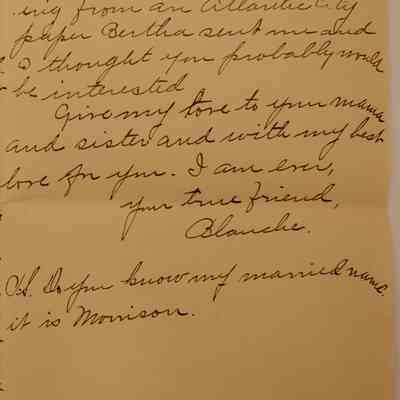 ing from an Atlantic City
paper Bertha sent me and
I thought you probably would
be interested
Give my love to your mama
and sister and with my best
love for you. I am ever,
your true friend,
Blanche.
P.S. Do you know my married name.
it is Morrison.